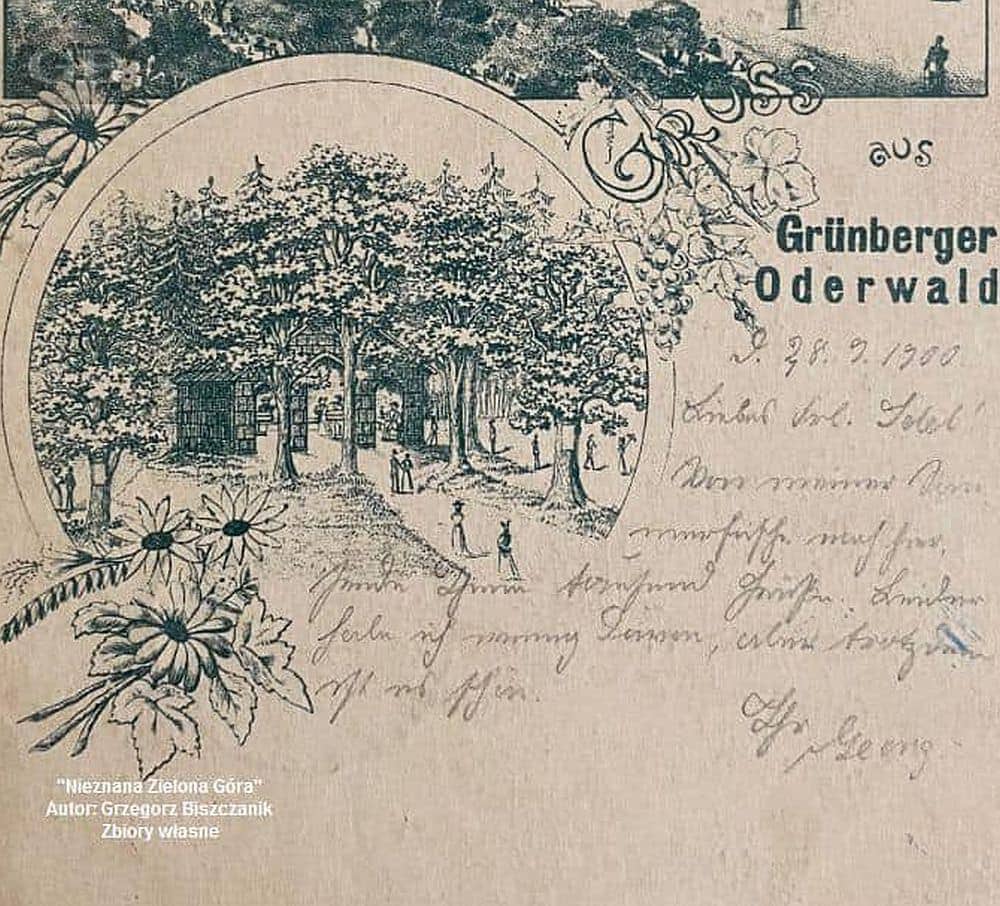 Gruss
aus
Grünberger
Oderwald
d. 28. 9. 1900
Liebes Frl.
Von meiner Som
merfrische nach hier,
sende Ihnen tausend Grüsse. Leider
habe ich wenig, aber trotzdem
ist es schön.
Ihr Georg.
"Nieznana Zielona Góra"
Autor: Grzegorz Biszczanik
Zbiory własne